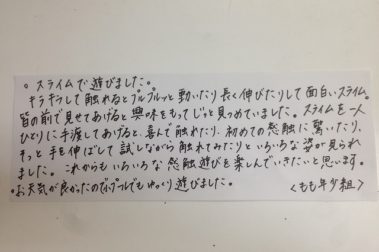 。スライムで遊びました。
キラキラして触れるとプルプルッと動いたり長く伸びたりして面白いスライム。
皆の前で見せてあげると興味をもってじっと見つめていました。スライムを一人
ひとりに手渡してあげると、喜んで触れたり、初めての感触に驚いたり、
そっと手を伸ばして試しながら触れてみたりといろいろな姿が見られ
ました。これからもいろいろな感触遊びを楽しんでいきたいと思います。
。お天気が良かったのでプールでもゆっくり遊びました。
<もも年少組>